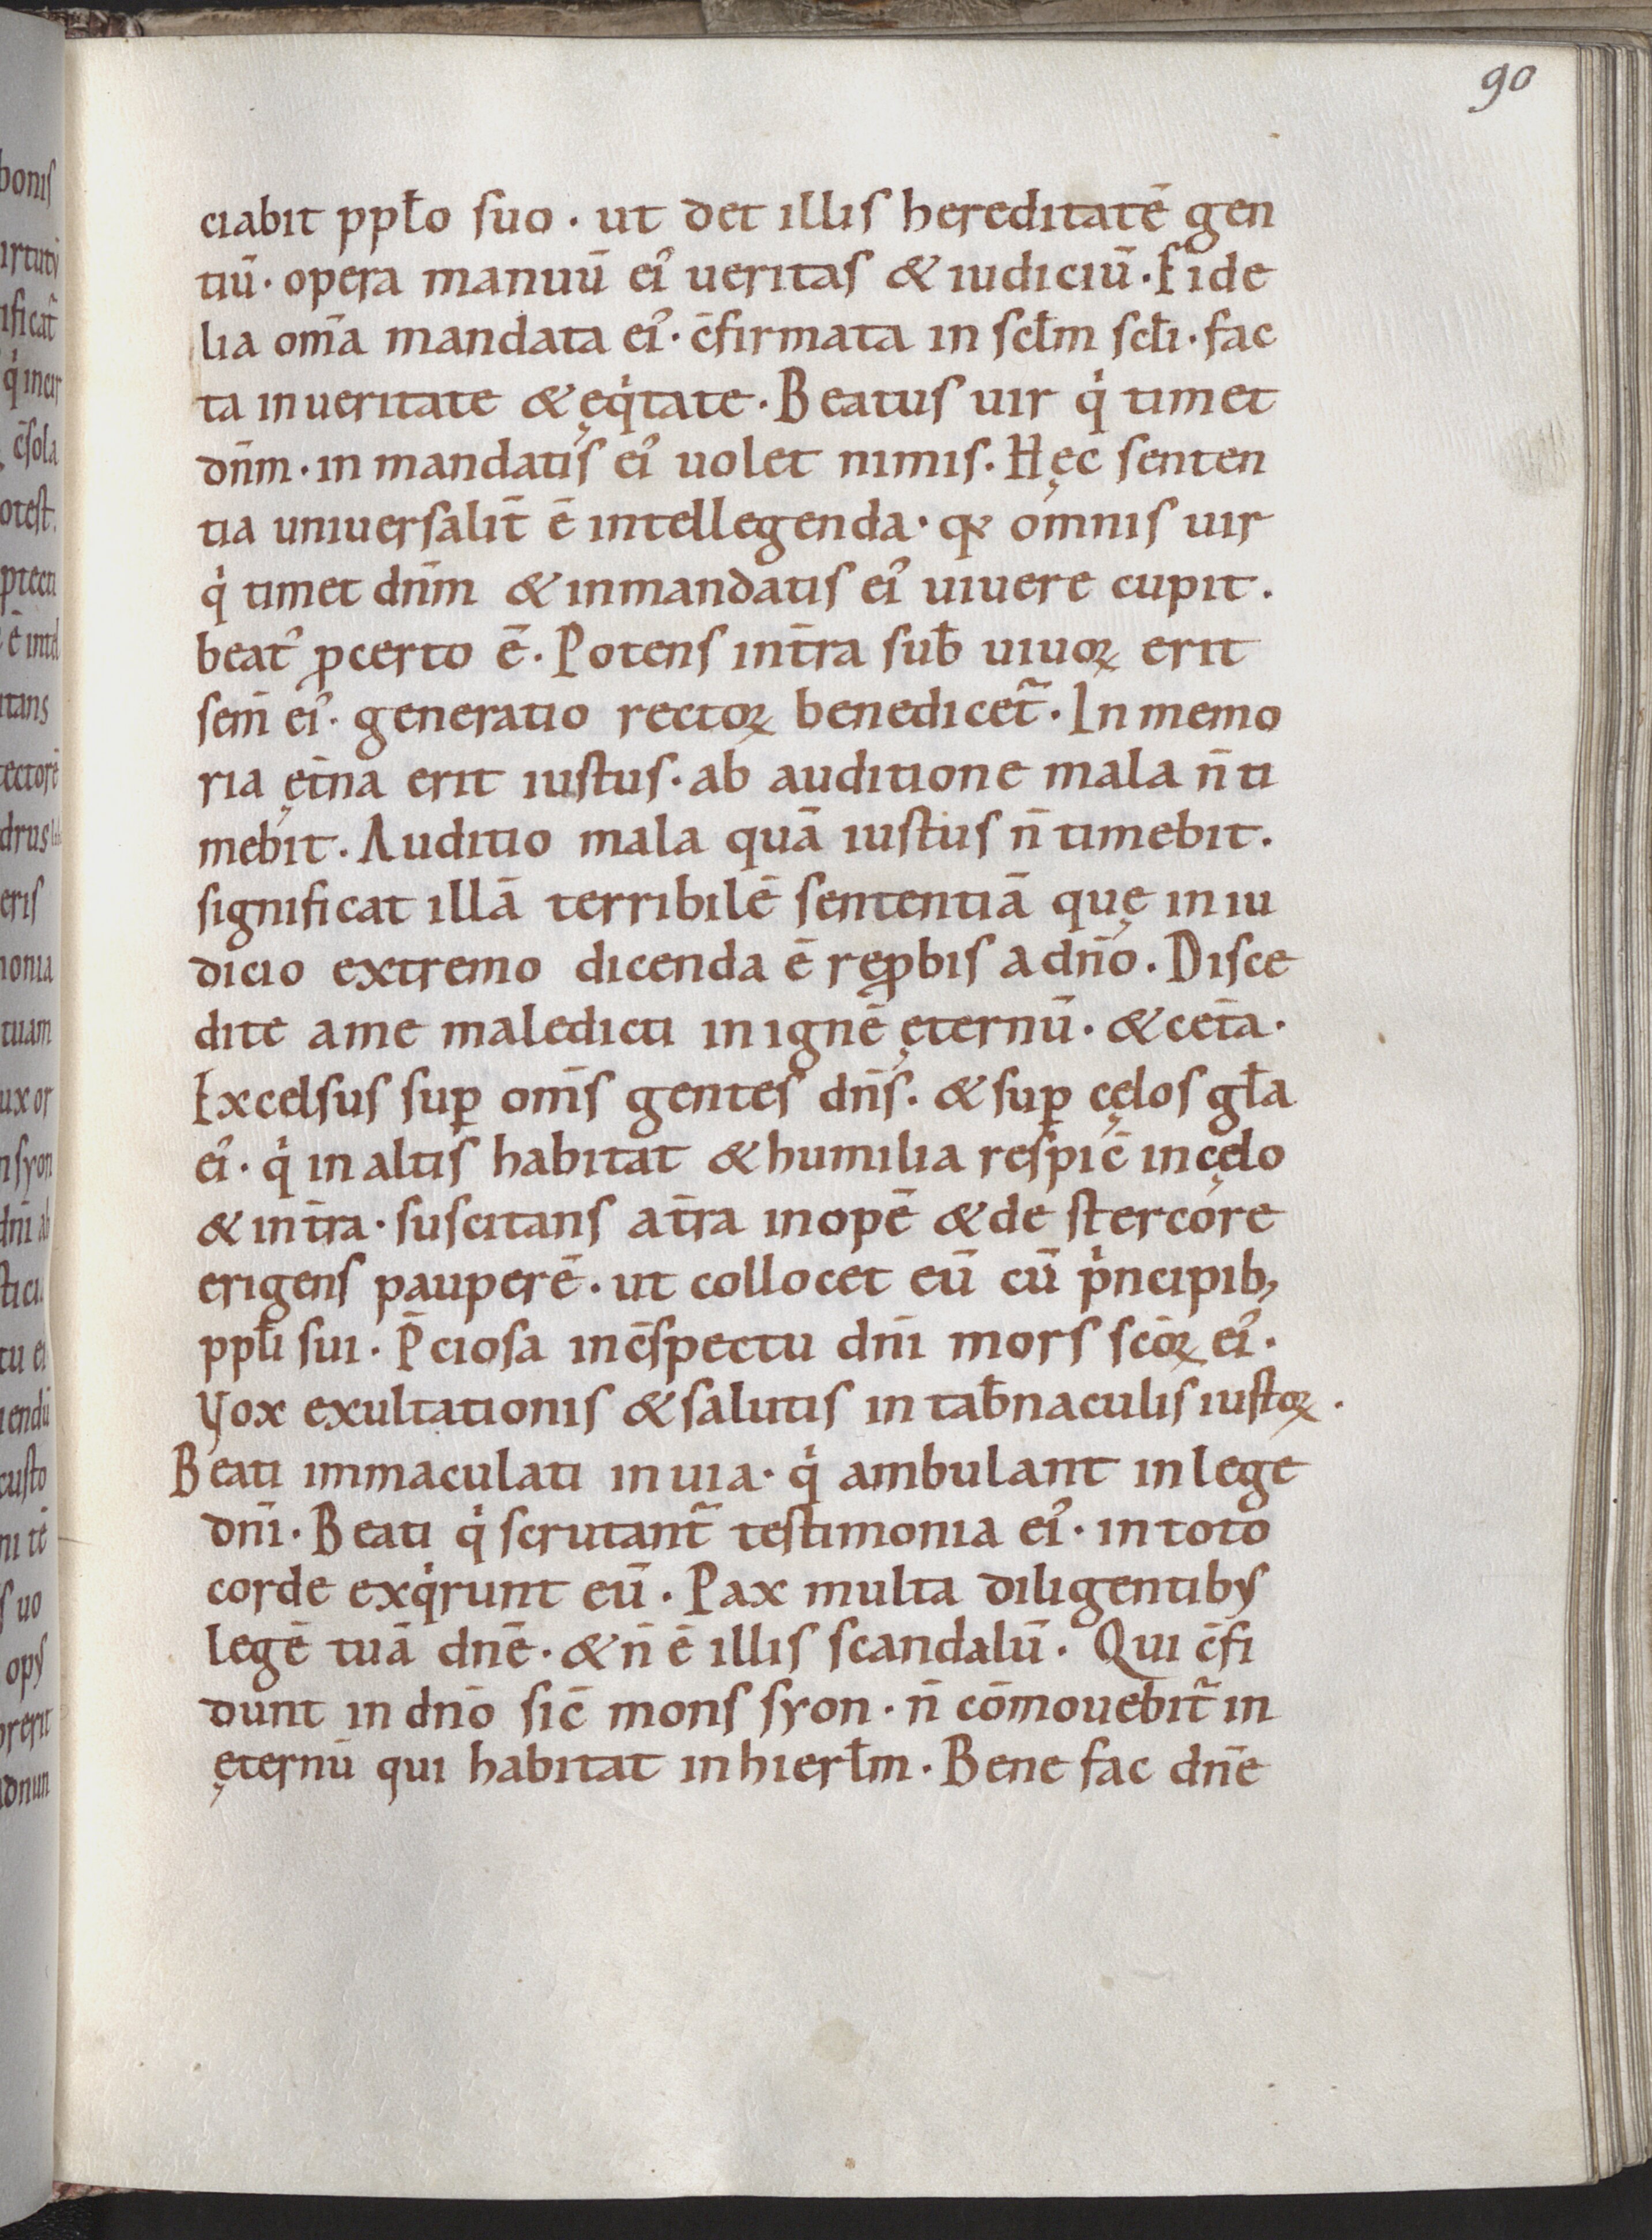 90
ciabit ppło suo · ut det illis hereditatē gen
tiū · opera manuū ei᾽ ueritas & iudiciū · Fide
lia om̄a mandata ei᾽ · c̄firmata in scłm scłi · fac
ta in ueritate & ęq̇tate · Beatus uir q̇ timet
dn̄m · in mandatis ei᾽ uolet nimis · Hęc senten
tia uniuersalit̄ ē intellegenda · qꝛ omnis uir
q̇ timet dn̄m & inmandatis ei᾽ uiuere cupit .
beat᾽ ꝓcerto ē · Potens int̄ra sub̄ uiuoꝝ erit
sem̄ ei᾽ · generatio rectoꝝ benedicet᷑ · In memo
ria ęt̄na erit iustus · ab auditione mala n̄ ti
mebit . Auditio mala quā iustus n̄ timebit .
significat illā terribilē sententiā quę in iu
dicio extremo dicenda ē reꝓbis a dn̄o . Disce
dite ame maledicti in ignē ęternū · & cet̄a ·
Excelsus suꝑ om̄s gentes dn̄s · & suꝑ cęlos gła
ei᾽ · q̇ in altis habitat & humilia respic̄ in cęlo
& in t̄ra · suscitans at̄ra inopē & de stercore
erigens pauperē · ut collocet eū cū pⁱncipib,
ppłi sui · P̄ciosa inc̄spectu dn̄i mors sc̄oꝝ ei᾽ ·
Vox exultationis & salutis in tab̄naculis iustoꝝ ·
Beati immaculati in uia · q̇ ambulant in lege
dn̄i · Beati q̇ scrutant᷑ testimonia ei᾽ · in toto
corde exq̇runt eū · Pax multa diligentibus
legē tuā dn̄e · & n̄ ē illis scandalū · Qui c̄fi
dunt in dn̄o sic̄ mons syon · n̄ cōmouebit᷑ in
ęternū qui habitat in hierłm · Bene fac dn̄e